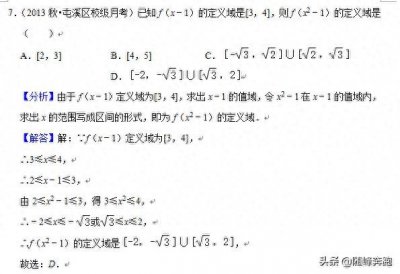 7.(2013 秋•屯溪区校级月考)已知 f(x﹣1)的定义域是[3,4],则 f(x²﹣1)的定义域是
( )
A.[2,3] B.[4,5] C.[-√3,√2]∪[√3,√2]
D.[-2,-√3]∪[√3,2]
【分析】由于 f(x﹣1)定义域为[3,4],求出 x﹣1 的值域,令 x²﹣1 在 x﹣1 的值域内,
求出 x 的范围写成区间的形式,即为 f(x²﹣1)的定义域.
【解答】解:∵f(x﹣1)定义域为[3,4],
∴3≤x≤4,
∴2≤x﹣1≤3,
由 2≤x²﹣1≤3,得 3≤x²≤4,
∴﹣2≤x≤﹣√3或√3≤x≤2,
∴f(x²﹣1)的定义域是[-2,-√3]∪[√3,2],
故选:D.
头条 @随峰奔跑